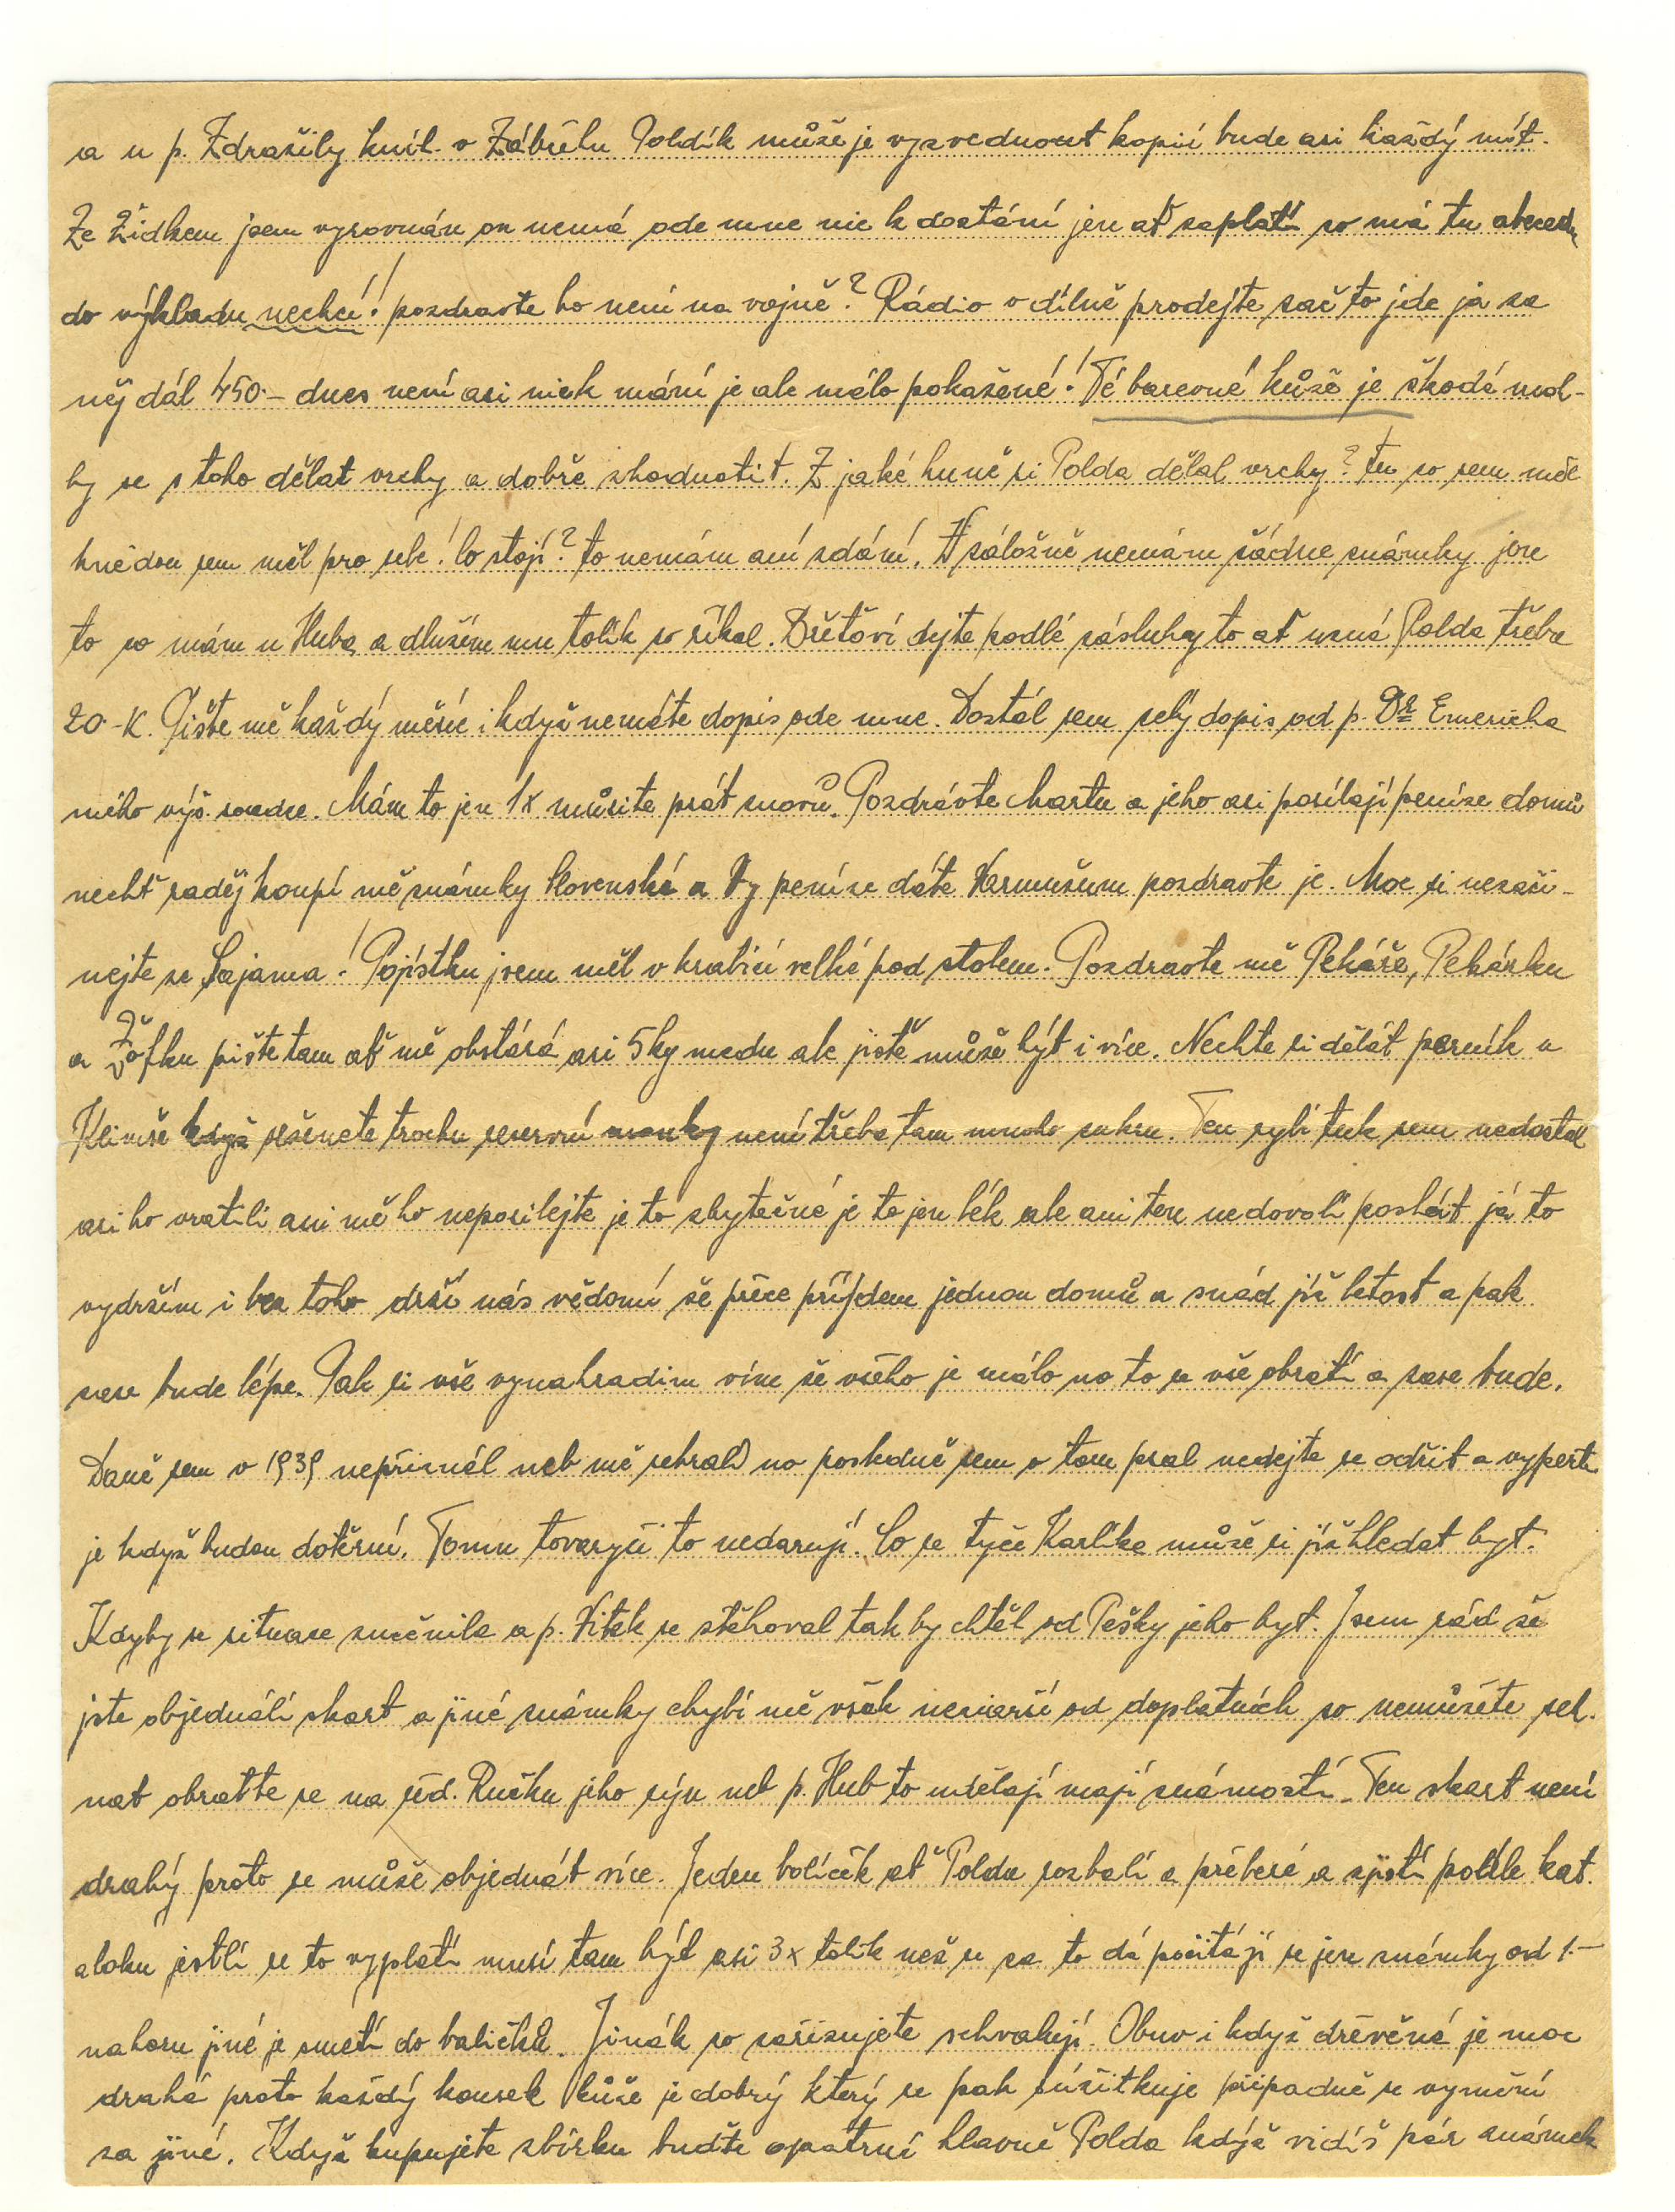 a u p. Zdražily kníh. v Zábřehu Poldík může je vyzvednout kopií bude asi každý mít.
Ze Židkem jsem vyrovnán on nemá ode mne nic k dostání jen ať zaplatí co má tu abecedu
do výkladu nechci! pozdravte ho není na vojně? Rádio v dílně prodejte zač to jde já za
něj dál 450.– dnes není asi nick mání je ale málo pokažené! Té barevné kůže je škodá mol-
by se s toho dělat vrchy a dobře zhodnotit. Z jaké huně si Polda dělal vrchy? tu co sem měl
hnědou sem měl pro sebe! Co stojí? to nemám aní zdání. V záložně nemám žádne známky jen
to co mám u Huba a dlužím mu tolik co říkal. Dřeťoví dejte podlé zásluhy to ať uzná Polda třeba
20.-K. Pište mě každý měsíc i když nemáte dopis ode mne. Dostál sem celý dopis od p. Dr Emericha
mého výš. soudce. Mám to jen 1x musite psát znovu. Pozdrávte Martu a jeho asi posílají peníze domů
nechť raděj koupí mě známky Slovenské a Vy peníze dáte Karmušum pozdravte je. Moc si nezaží-
nejte se Sajama! Pojístku jsem měl v krabici velké pod stolem. Pozdravte mě Pekáře, Pekárku
a Žofku pište tam ať mě obstárá asi 5kg medu ale jistě může být i více. Nechte si dělát perník u
Klimše když seženete trochu rezervní mouky není třeba tam mnoho cukru. Ten rybí tuk sem nedostal
asi ho vratili ani mě ho neposilejte je to zbytečné je to jen lék ale ani ten nedovolí poslát já to
vydržím i bez toho drží nás vědomí že přece příjdem jednou domů a snád již letost a pak
zase bude lépe. Pak si vše vynahradim vím že všeho je málo no to se vše obratí a zase bude.
Daně sem v 1939 nepřiznál neb mě sebrali no posledně sem o tom psal nedejte se odřit a vyperte
je když budou dotěrní. Tomu tovaryši to nedaruji! Co se tyče Karlíka může si již hledat byt.
Kdyby se situace změnila a p. Vitek se stěhoval tak by chtěl od Pešky jeho byt. Jsem rád že
jste objednáli skart a jiné známky chybí mě však od doplatních co nemůžete seh.
nat obraťte se na řed. Ručku jého sýn neb p. Hub to udělají mají známostí. Ten skart není
drahý proto se může objednát více. Jeden balíček ať Polda rozbalí a přebere a zjistí podle kat.
alohu jestlí se to vyplatí musí tam být asi 3x tolik než se za to dá počitájí se jen známky od 1.–
nahoru jiné je smetí do balíčků. Jinák co zařizujete schvaluji. Obuv i když dřevěná je moc
drahá proto každý kousek kůže je dobrý který se pak zúžitkuje připadně se vymění
za jiné. Když kupujete zbírku buďte opatrní hlavně Polda když vidíš pár známek